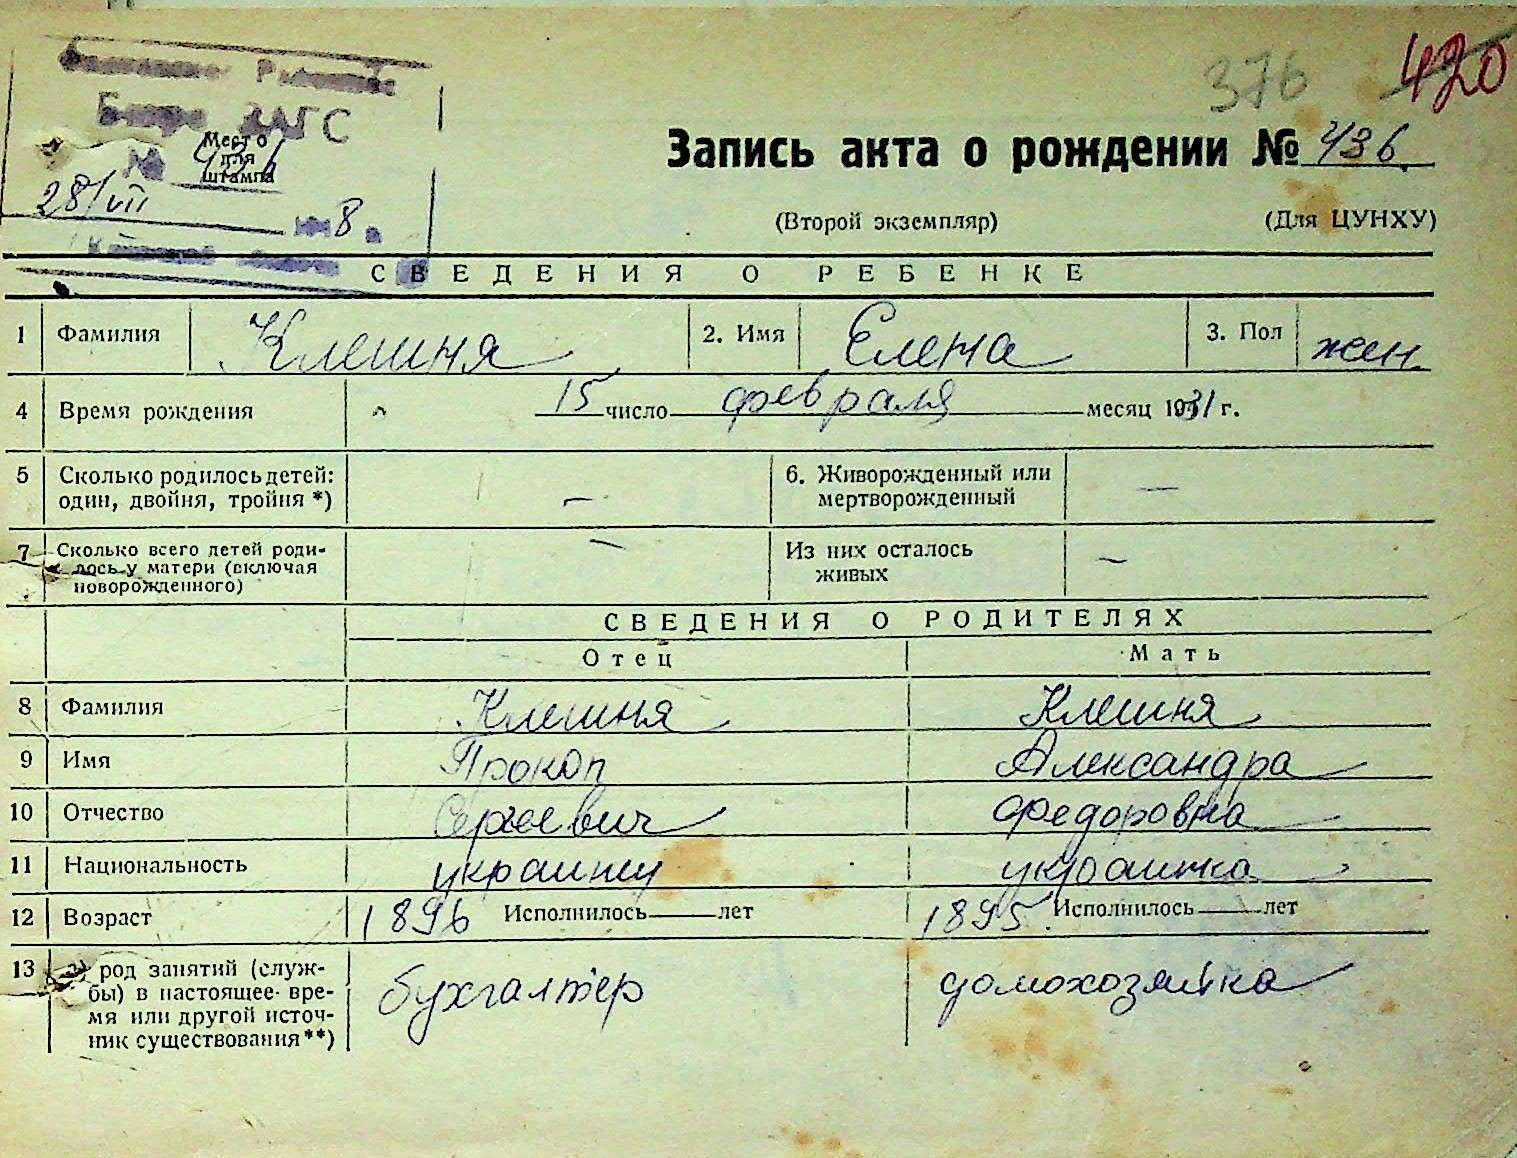 376 420
Бюро ЗАГС
Место
для
штампа
28/VII
8
Запись акта о рождении № 436.
(Второй экземпляр) (Для ЦУНХУ)
СВЕДЕНИЯ О РЕБЕНКЕ
1 Фамилия Клешня 2. Имя Елена 3. Пол жен
4 Время рождения 15 число февраля месяц 1931 г.
5 Сколько родилось детей: — 6. Живорожденный или —
один, двойня, тройня *) мертворожденный
7 Сколько всего детей роди- — Из них осталось —
лось у матери (включая живых
новорожденного)
СВЕДЕНИЯ О РОДИТЕЛЯХ
Отец Мать
8 Фамилия Клешня Клешня
9 Имя Прокоп Александра
10 Отчество Сергеевич Федоровна
11 Национальность украинец украинка
12 Возраст 1896 Исполнилось — лет 1895. Исполнилось — лет
13 а) род занятий (служ- бухгалтер домохозяйка
бы) в настоящее вре-
мя или другой источ-
ник существования **)